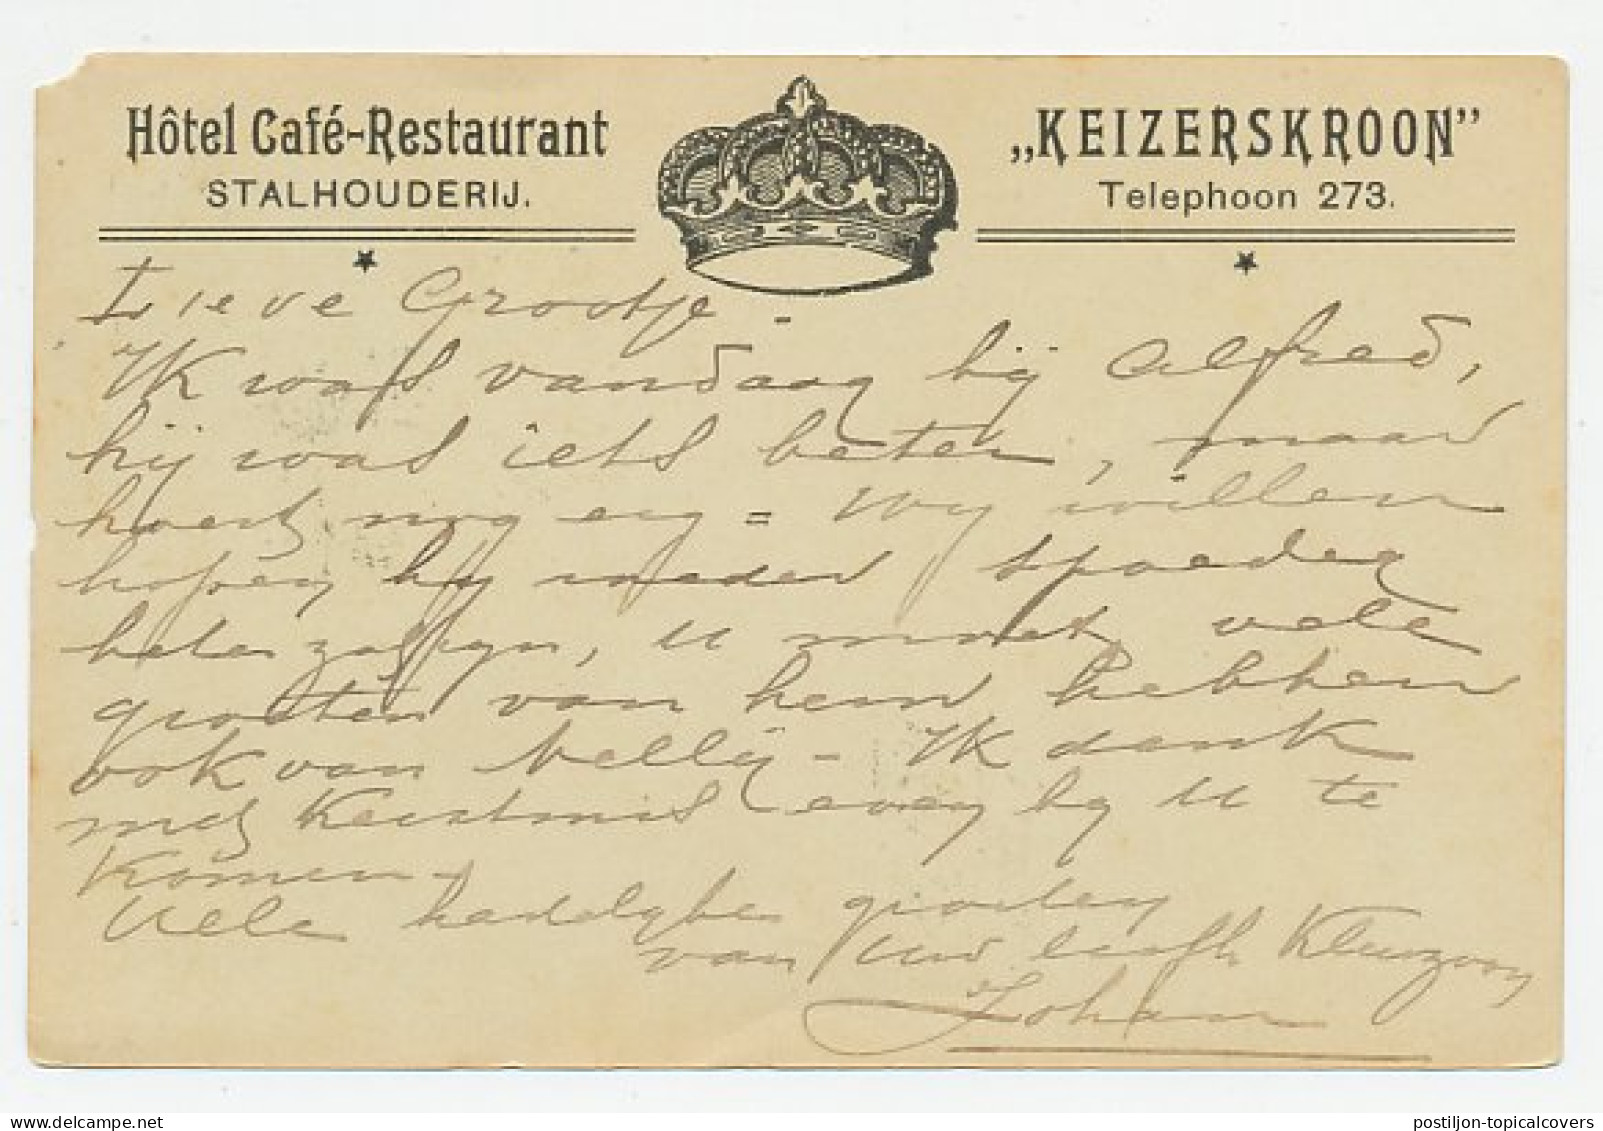 Hôtel Café-Restaurant
STALHOUDERIJ.
„KEIZERSKROON”
Telephoon 273.
Lieve Grootje -
Ik was vandaag bij Alfred,
hij was iets beter, maar
hoest nog erg = Wy willen
hopen hy weder spoedig
beter zal zyn, U moet vele
groeten van hem hebben
ook van Nellij - Ik denk
met Kerstmis even by U te
komen -
Vele hartelyke groeten
van Uw liefh Kleinzoon
Johan
postiljon-topicalcovers